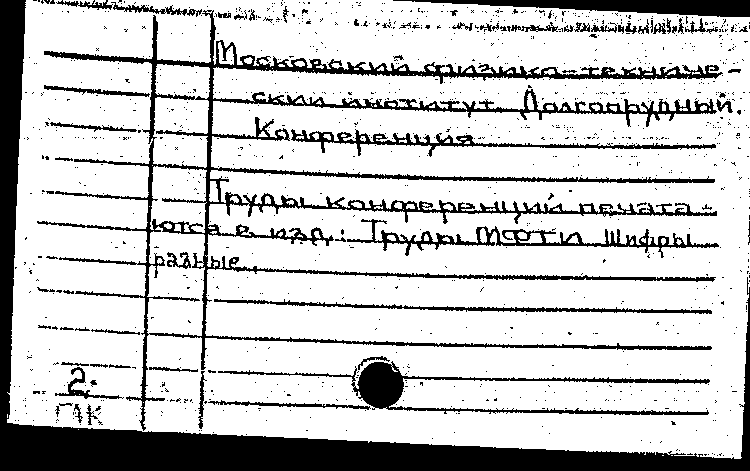 Московский физико-техниче-
ский институт. Долгопрудный.
Конференция
Труды конференций печата-
ются в изд.: Труды МФТИ Шифры
разные.
2.
ГАК